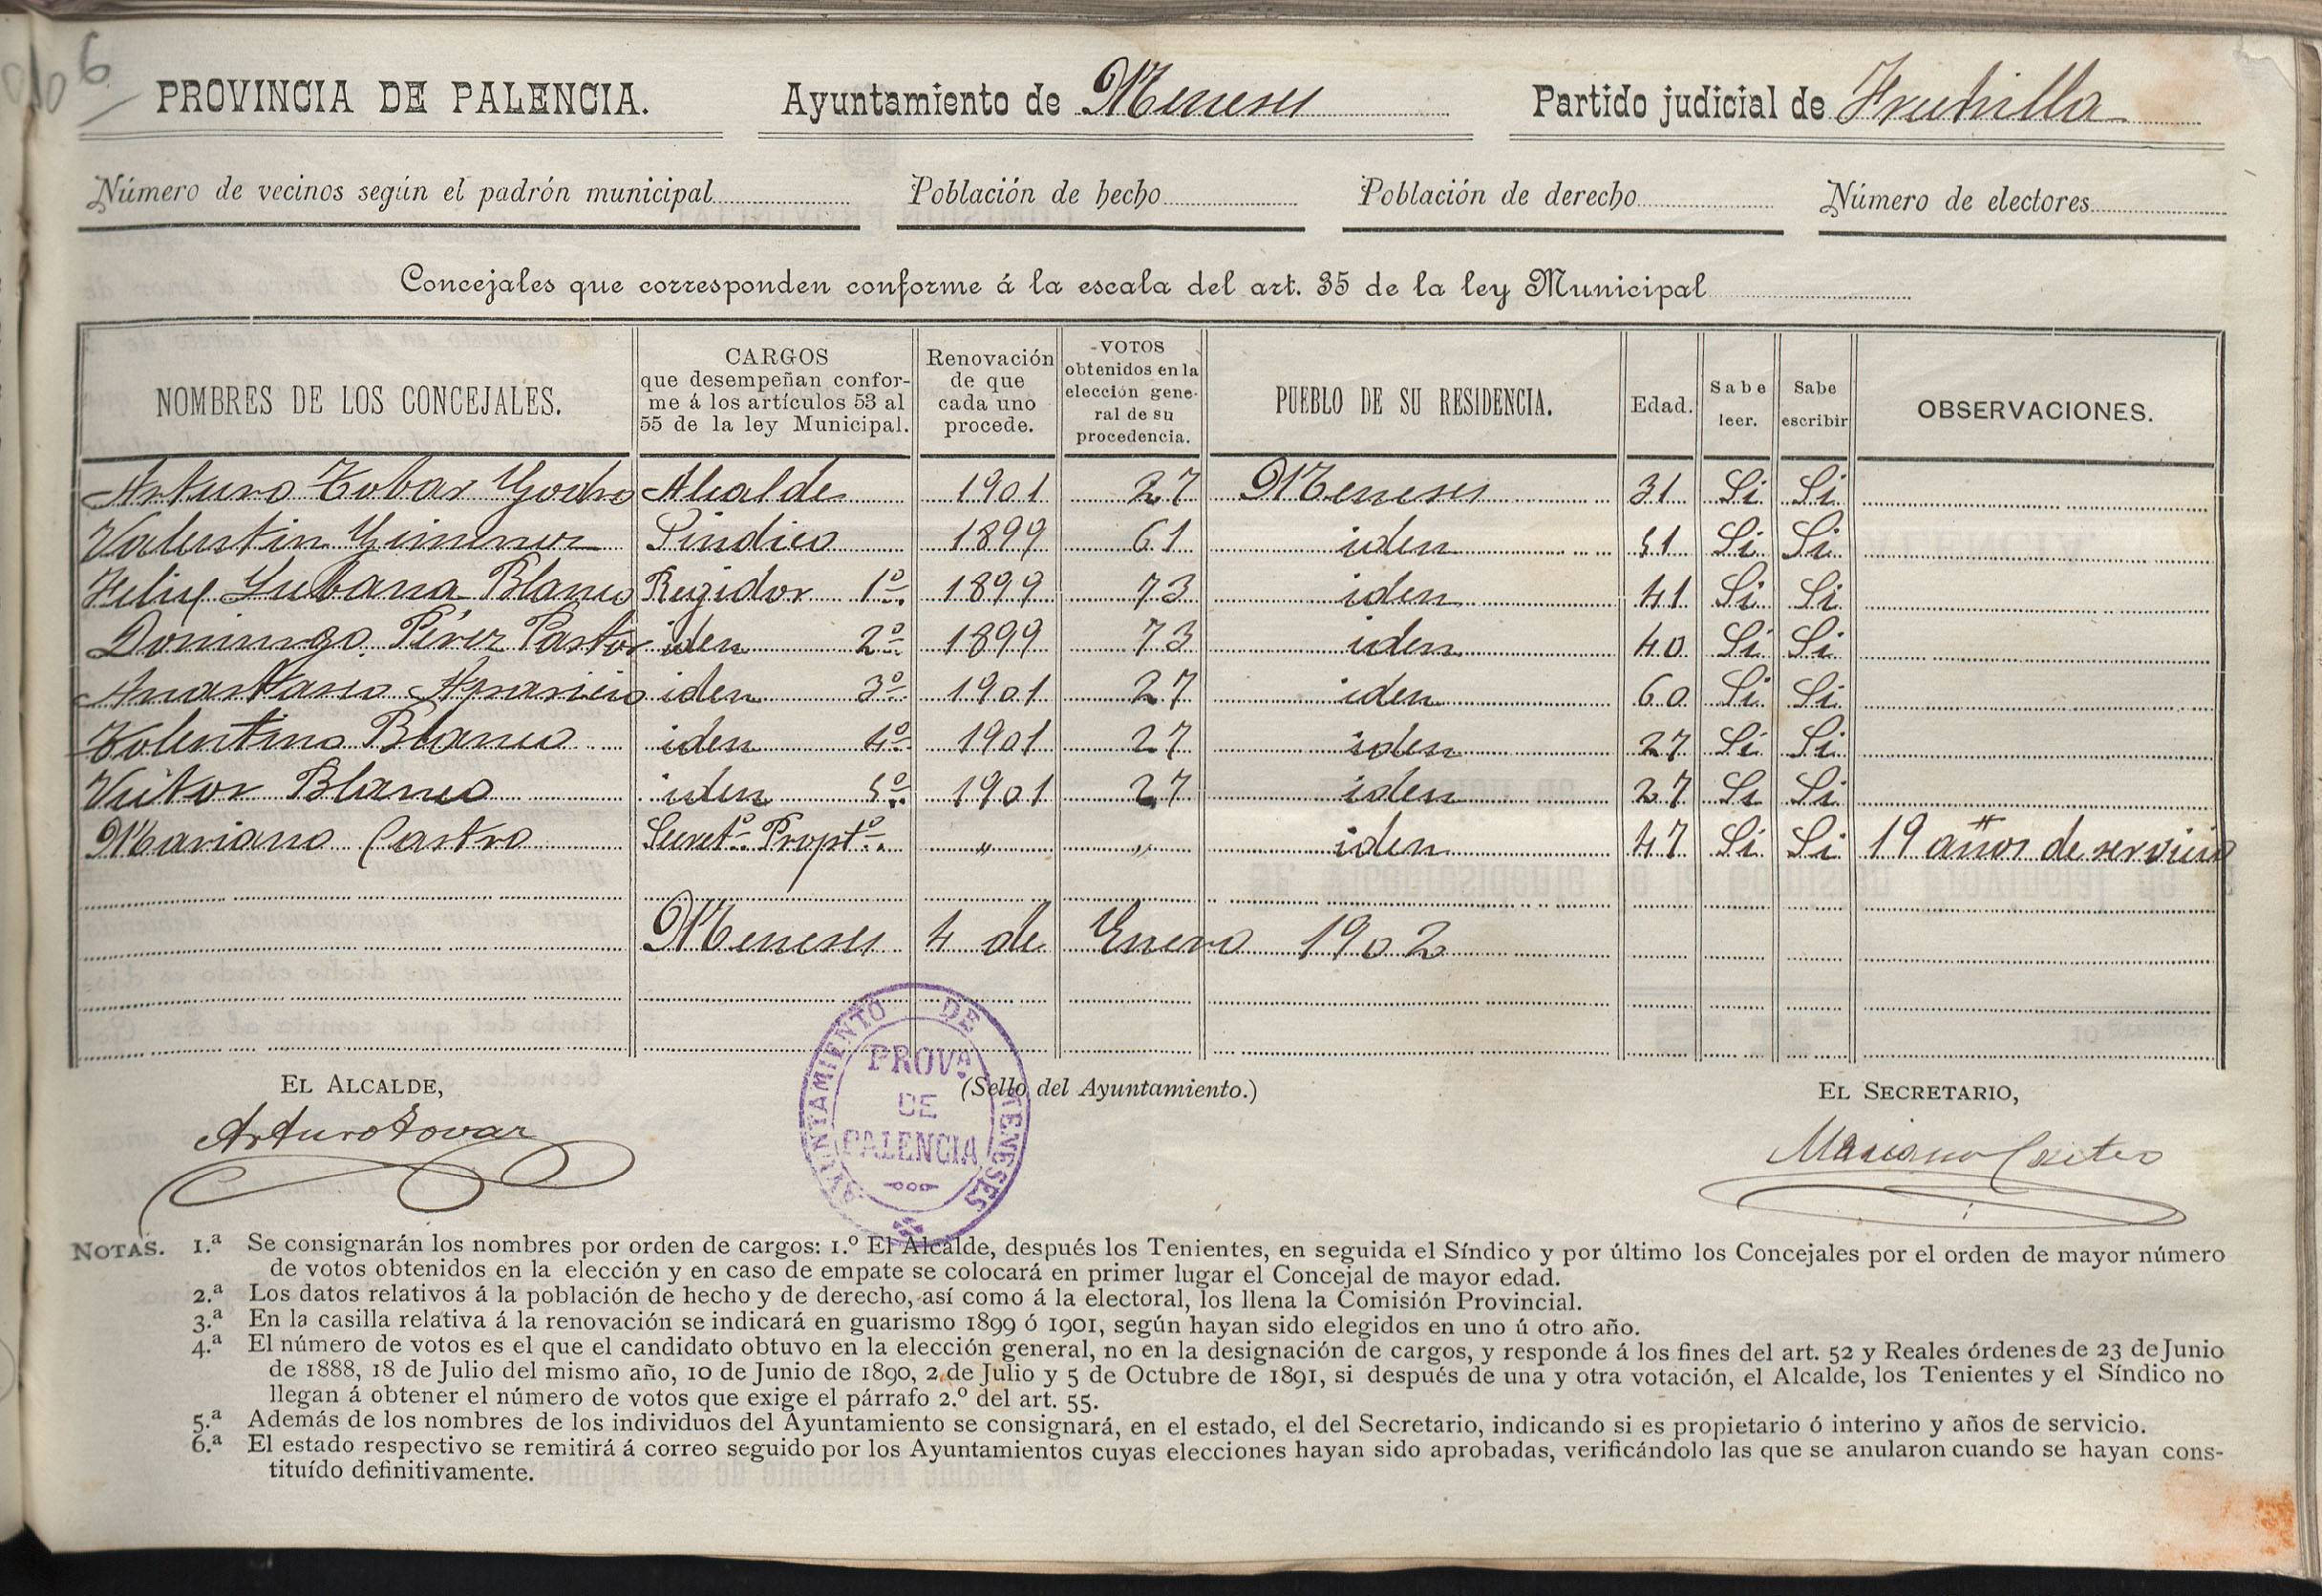 6
PROVINCIA DE PALENCIA. Ayuntamiento de Meneses Partido judicial de Frechilla
Número de vecinos según el padrón municipal Población de hecho Población de derecho Número de electores
Concejales que corresponden conforme á la escala del art. 35 de la ley Municipal
NOMBRES DE LOS CONCEJALES. CARGOS que desempeñan conforme á los artículos 53 al 55 de la ley Municipal. Renovación de que cada uno procede. VOTOS obtenidos en la elección general de su procedencia. PUEBLO DE SU RESIDENCIA. Edad. Sabe leer. Sabe escribir OBSERVACIONES.
Arturo Tobar Godro Alcalde 1901 27 Meneses 31 Si Si
Valentin Gimenez Sindico 1899 61 iden 51 Si Si
Felix Lubana Blanco Regidor 1º 1899 73 iden 41 Si Si
Domingo Pérez Pastor iden 2º 1899 73 iden 40 Si Si
Anastasio Aparicio iden 3º 1901 27 iden 60 Si Si
Valentino Blanco iden 4º 1901 27 iden 27 Si Si
Victor Blanco iden 5º 1901 27 iden 27 Si Si
Mariano Castro Secretº Proptº. „ „ iden 47 Si Si 19 años de servicio
Meneses 4 de Enero 1902
EL ALCALDE, (Sello del Ayuntamiento.) EL SECRETARIO,
AYUNTAMIENTO DE MENESES
PROVª DE PALENCIA
Arturo Tovar Mariano Castro
NOTAS. 1.ª Se consignarán los nombres por orden de cargos: 1.º El Alcalde, después los Tenientes, en seguida el Síndico y por último los Concejales por el orden de mayor número
de votos obtenidos en la elección y en caso de empate se colocará en primer lugar el Concejal de mayor edad.
2.ª Los datos relativos á la población de hecho y de derecho, así como á la electoral, los llena la Comisión Provincial.
3.ª En la casilla relativa á la renovación se indicará en guarismo 1899 ó 1901, según hayan sido elegidos en uno ú otro año.
4.ª El número de votos es el que el candidato obtuvo en la elección general, no en la designación de cargos, y responde á los fines del art. 52 y Reales órdenes de 23 de Junio
de 1888, 18 de Julio del mismo año, 10 de Junio de 1890, 2 de Julio y 5 de Octubre de 1891, si después de una y otra votación, el Alcalde, los Tenientes y el Síndico no
llegan á obtener el número de votos que exige el párrafo 2.º del art. 55.
5.ª Además de los nombres de los individuos del Ayuntamiento se consignará, en el estado, el del Secretario, indicando si es propietario ó interino y años de servicio.
6.ª El estado respectivo se remitirá á correo seguido por los Ayuntamientos cuyas elecciones hayan sido aprobadas, verificándolo las que se anularon cuando se hayan cons-
tituído definitivamente.